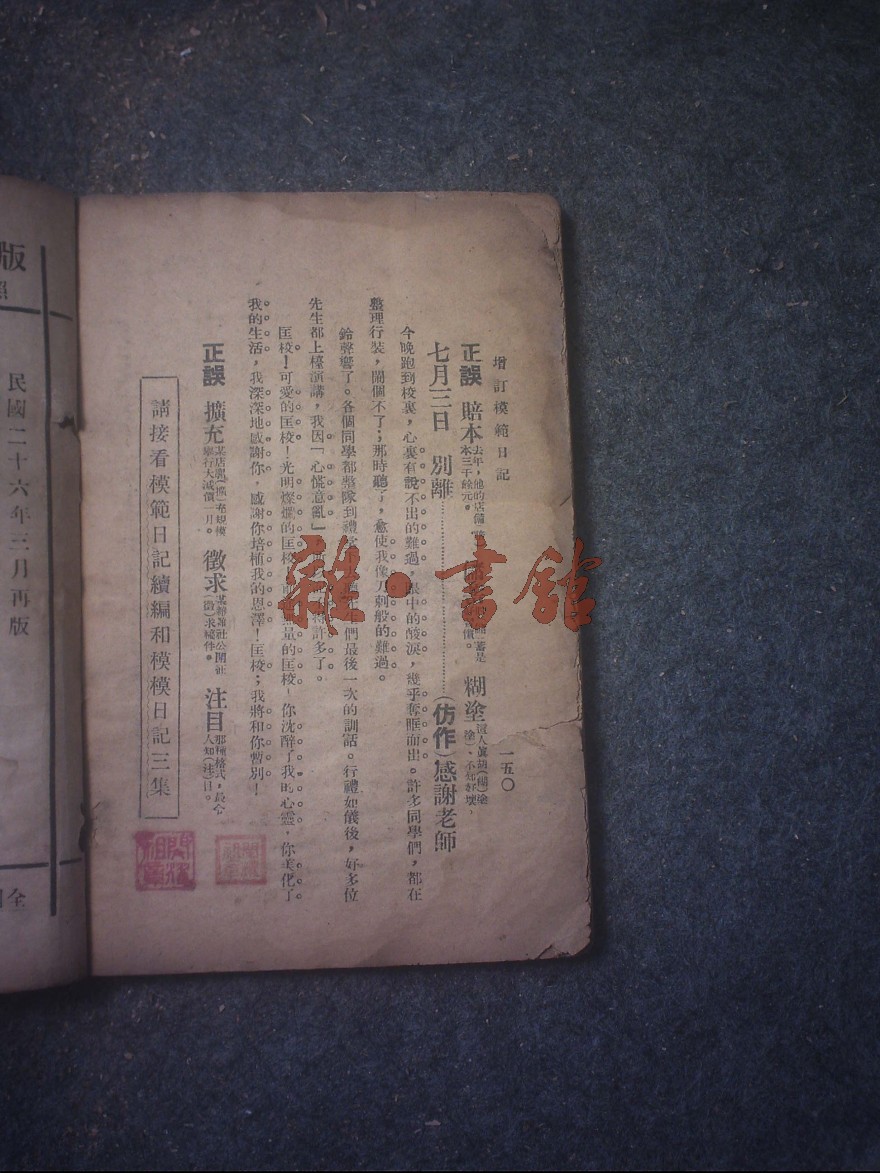 增訂模範日記
一五〇
正誤 賠本 去年，他的店舖
本三千餘元。
糊塗 塗），不知好壞，
七月三日 別離……（仿作）感謝老師
今晚跑到校裏，心裏有說不出的難過，眼中的酸淚，幾乎奪眶而出。許多同學們，都在
整理行裝，鬧個不了；那時聽了，愈使我像刀刺般的難過。
鈴聲響了。各個同學都整隊到禮 們最後一次的訓話。行禮如儀後，好多位
先生都上檯演講，我因「心慌意亂」， 許多了。
匡校！可愛的匡校！光明燦爛的匡校！ 量的匡校！你沈醉了我的心靈，你美化了
我的生活，我深深地感謝你，感謝你培植我的恩澤！匡校；我將和你暫別！
正誤 擴充 某店開（擴）充規模
舉行大減價一月。
徵求 公開社
（徵）求稿件。
注目 那種格式，最令
人知（注）目。
請接看模範日記續編和模模日記三集
版
民國二十六年三月再版
全
雜·書館